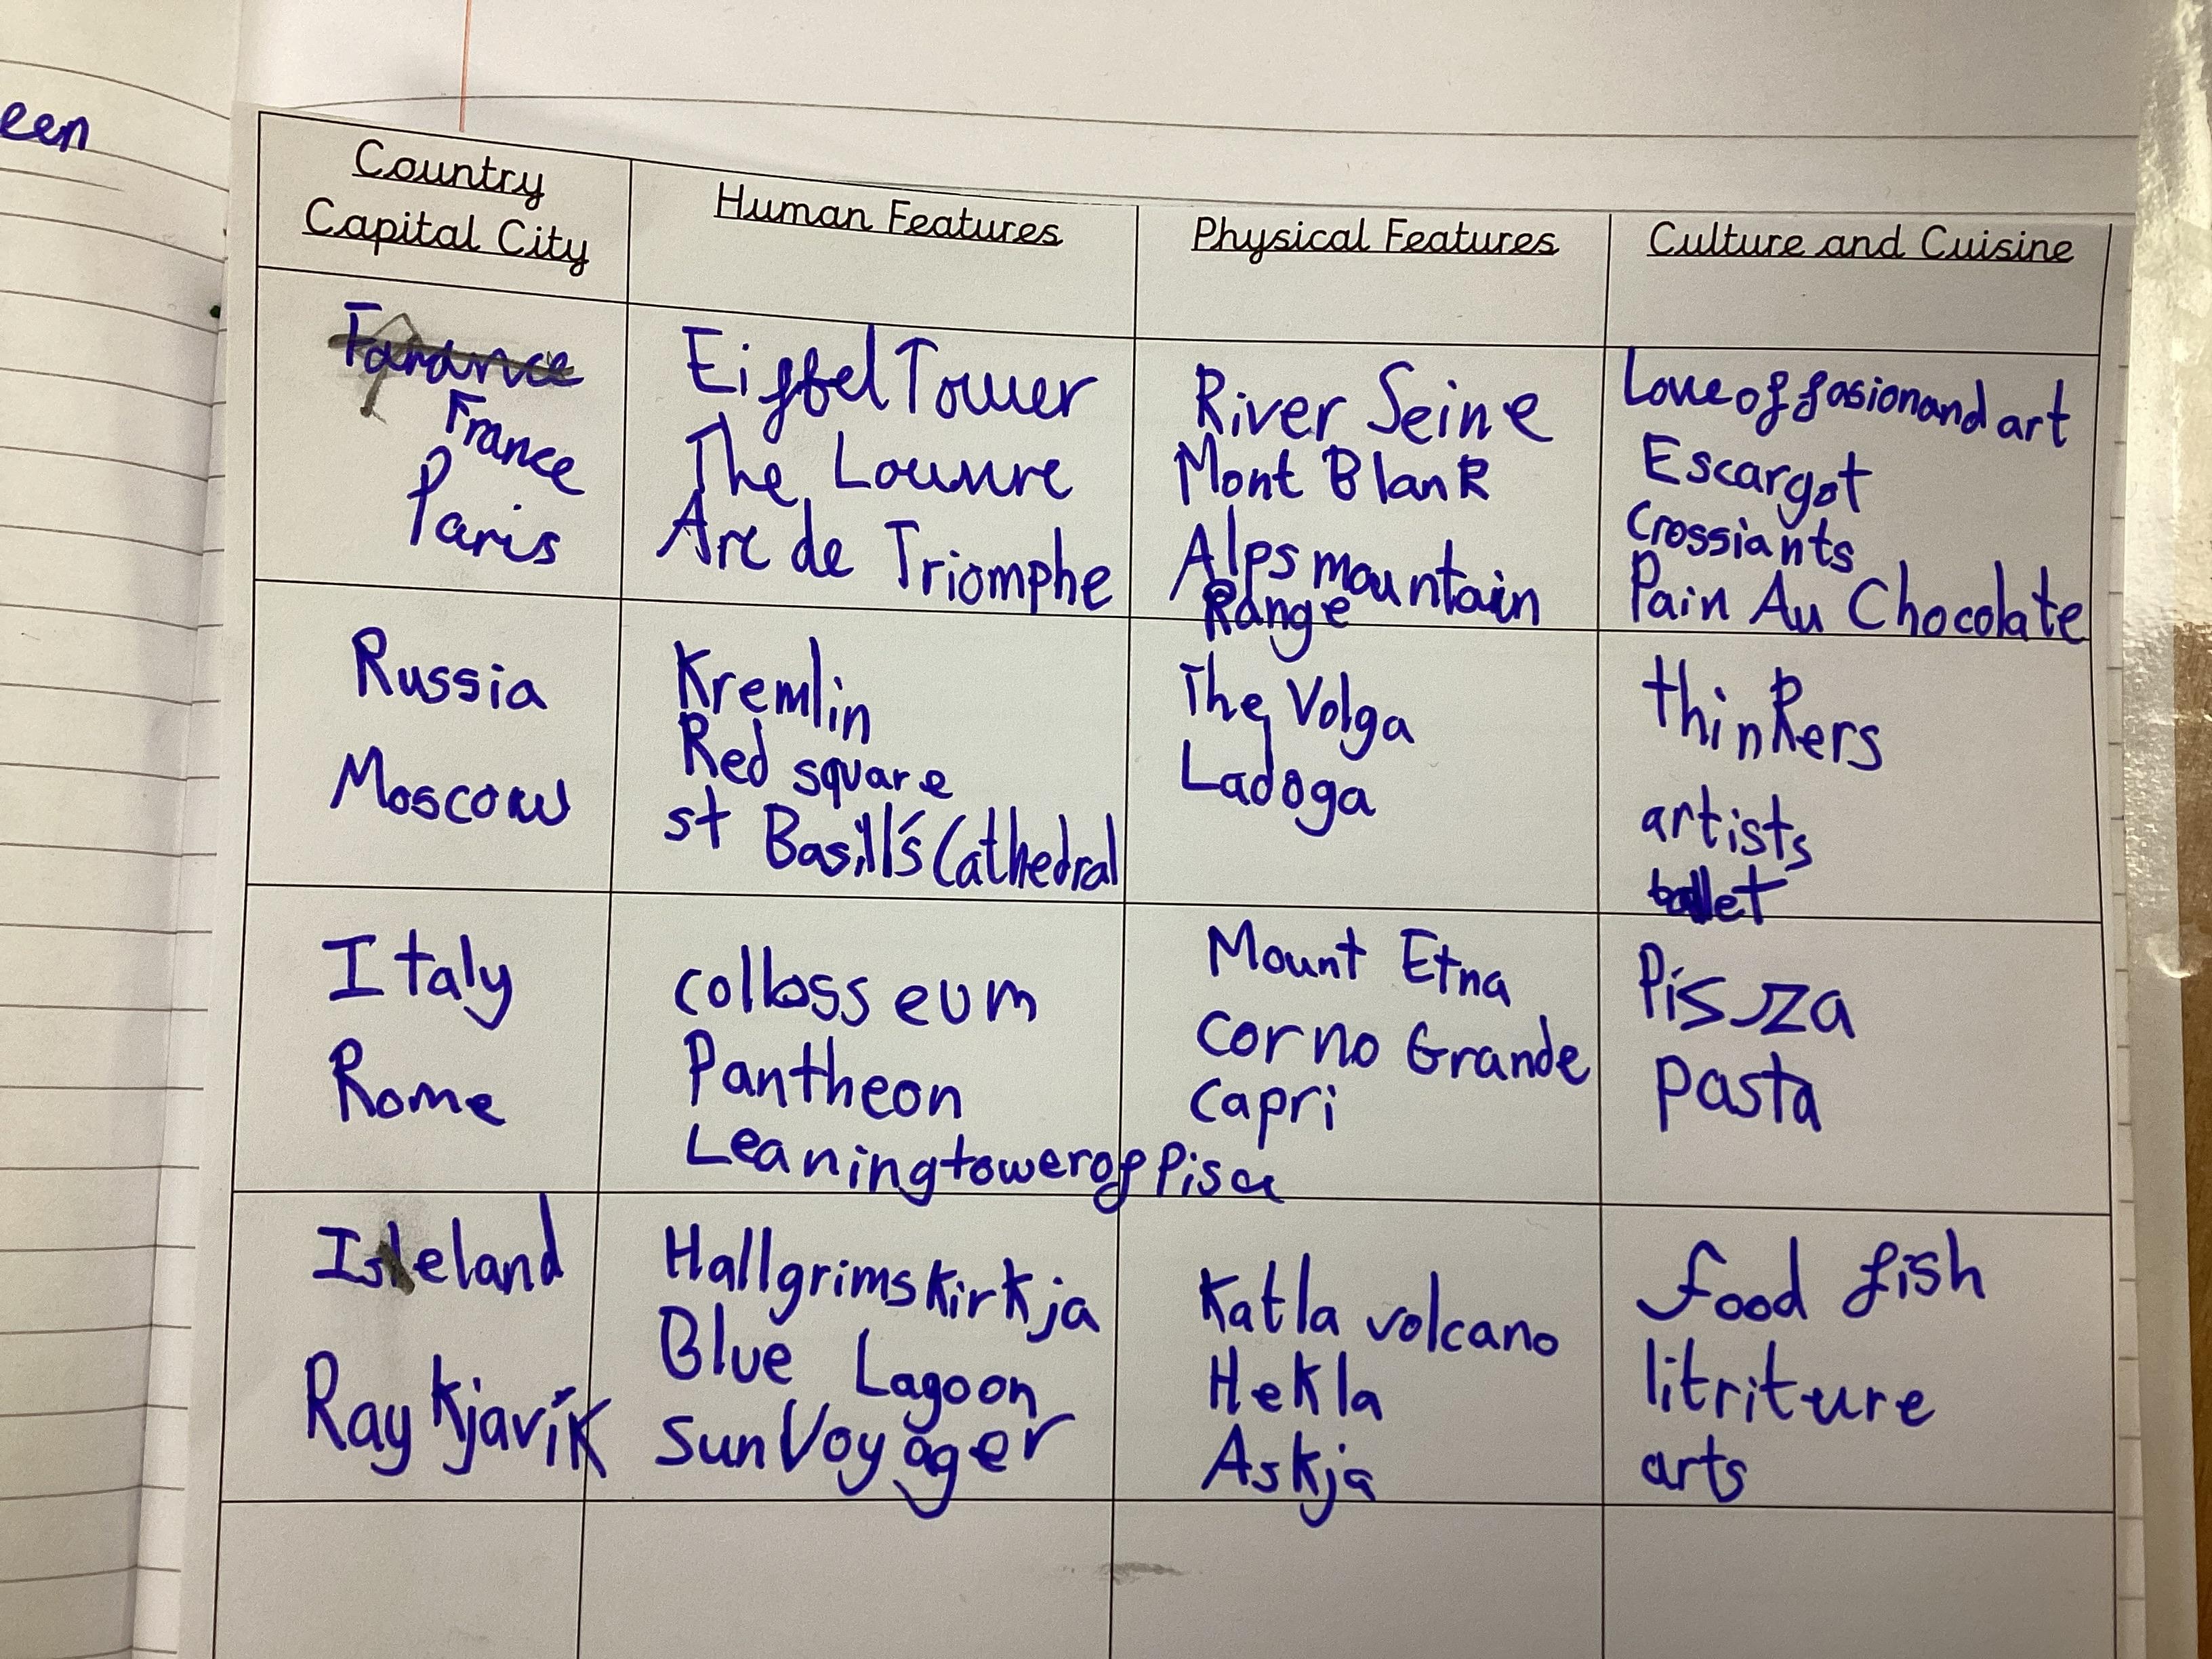 een
Country
Capital City
Human Features
Physical Features
Culture and Cuisine
France
Paris
Eiffel Tower
The Louvre
Arc de Triomphe
River Seine
Mont Blank
Alps mountain
Range
Love of fasion and art
Escargot
Crossiants
Pain Au Chocolate
Russia
Moscow
Kremlin
Red square
st Basill's Cathedral
The Volga
Ladoga
thinkers
artists
ballet
Italy
Rome
collosseum
Pantheon
Leaning tower of Pisa
Mount Etna
corno Grande
Capri
pasta
Raykjavík
Hallgrimskirkja
Blue Lagoon
sun Voyager
Katla volcano
Hekla
Askja
food fish
litriture
arts